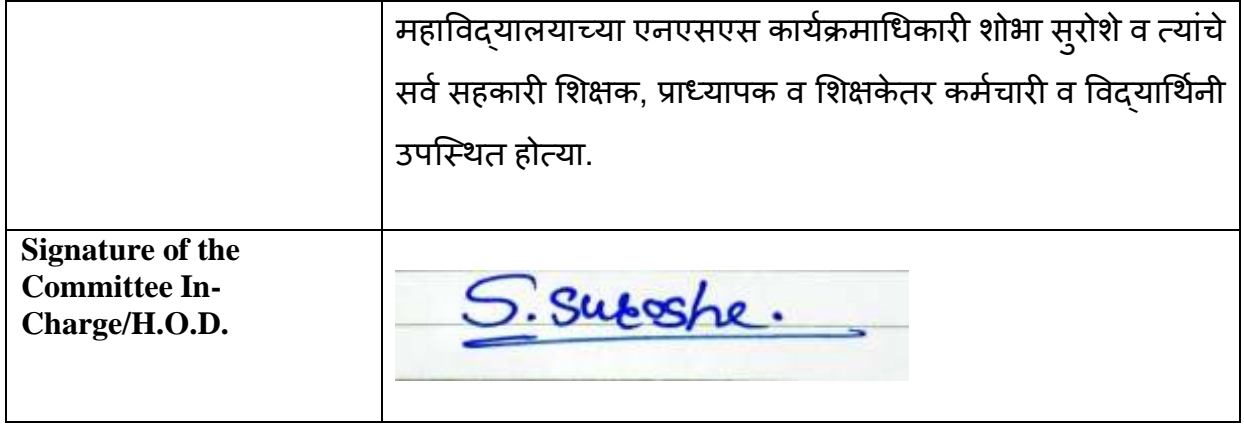 महाविद्यालयाच्या एनएसएस कार्यक्रमाधिकारी शोभा सुरोशे व त्यांचे
सर्व सहकारी शिक्षक, प्राध्यापक व शिक्षकेतर कर्मचारी व विद्यार्थिनी
उपस्थित होत्या.
Signature of the
Committee In-
Charge/H.O.D.
S. Suroshe.